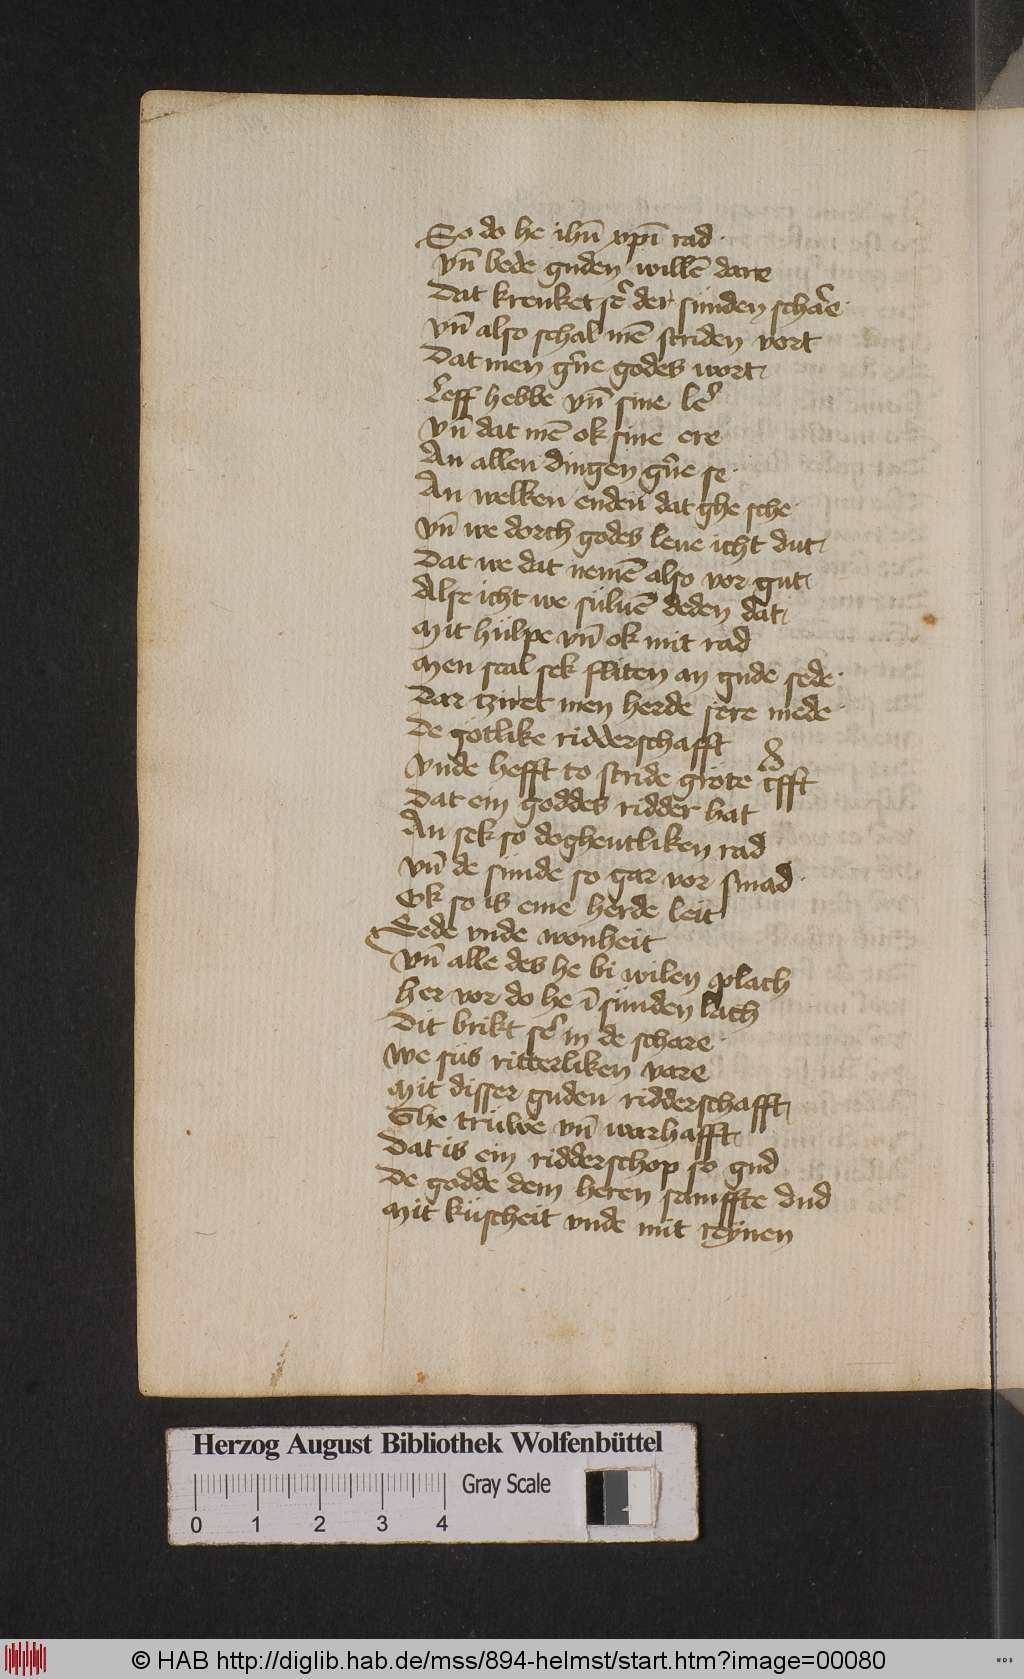 So do he ihū xpī rad
vn̄ bede guden willē dare
Dat krenket sēr der sunden schāre
vn̄ also schal mē striden vort
Dat men gʼne godes wort
Leff hebbe vn̄ sine lēʼ
vn̄ dat mē ok sine ere
An allen dingen gʼne se
An welken enden dat ghe sche
vn̄ we dorch godes leue icht dut
Dat we dat nemē also vor gut
Alse icht we süluē deden dat
Mit hülpe vn̄ ok mit rad
Men scal sek fliten an gude sede
Dar tziret men herde sere mede
De gotlike ridderschafft
vnde hefft to stride grote cʼfft
Dat ein goddes ridder hat
An sek so doghentliken rad
vn̄ de sunde so gar vor smad
Ok so is eme herde leit
Sede vnde wonheit
vn̄ alle des he bi wilen plach
her vor do he ī sunden lach
Dit brikt sēʼ in de schare
we süs ritterliken vare
Mit disser guden ridderschafft
Ghe trüwe vn̄ warhafft
Dat is ein ridderschop so gud
De godde dem heren samffte dud
Mit küscheit vnde mit reynen
Herzog August Bibliothek Wolfenbüttel
Gray Scale
0 1 2 3 4
© HAB http://diglib.hab.de/mss/894-helmst/start.htm?image=00080